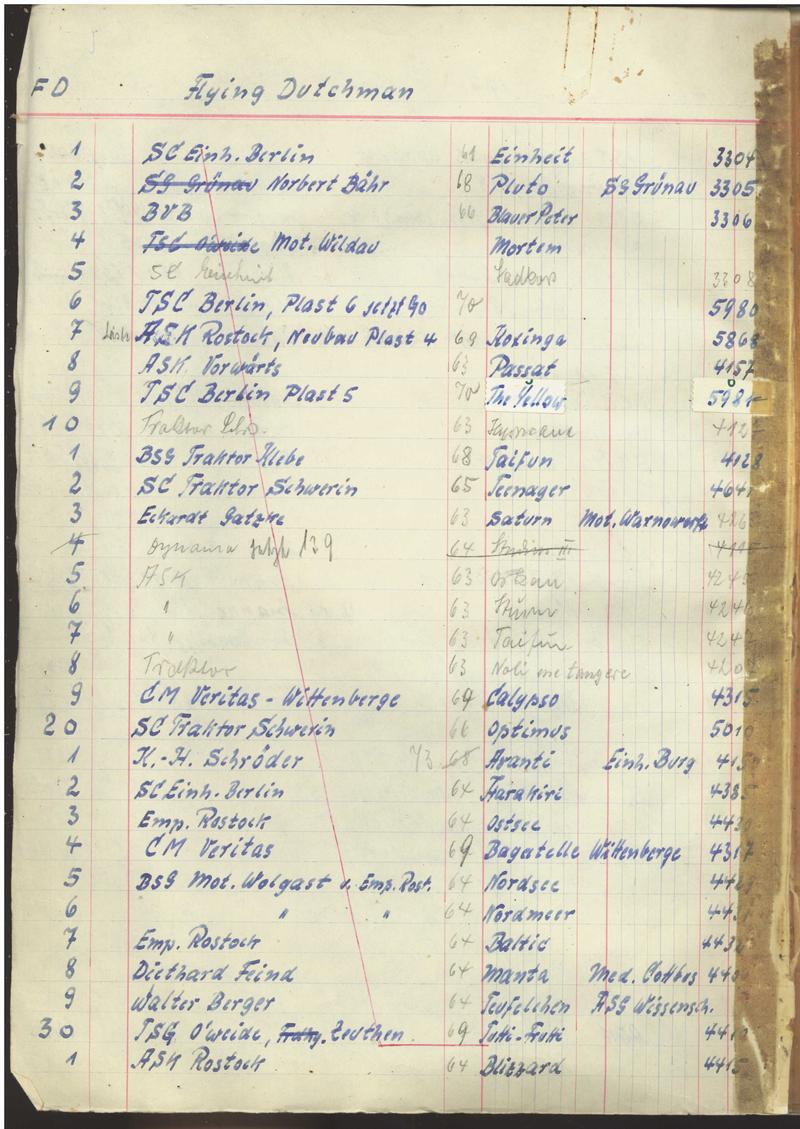 FD Flying Dutchman
1 SC Einh. Berlin 61 Einheit 3304
2 SG Grünau Norbert Bähr 68 Pluto SG Grünau 3305
3 BVB 66 Blauer Peter 3306
4 TSG O'weide Mot. Wildau Mortem
5 SC Einheit 3308
6 TSC Berlin, Plast 6 jetzt 90 70 5980
7 ASK Rostock, Neubau Plast 4 69 Koxinga 5868
8 ASK Vorwärts 63 Passat 4157
9 TSC Berlin Plast 5 70 The Yellow 5981
10 Traktor 63
1 BSG Traktor Klebe 68 Taifun 4128
2 SC Traktor Schwerin 65 Teenager 4641
3 Eckardt Gatzke 63 Saturn Mot. Warnowwerft
4 Dynamo jetzt 139 64 Studio III
5 ASK 63 Orkan 4245
6 " 63 Sturm 4246
7 " 63 Taifun 4247
8 Traktor 63 Noli me tangere
9 CM Veritas - Wittenberge 69 Calypso 4315
20 SC Traktor Schwerin 66 Optimus 5010
1 K.-H. Schröder 73 68 Avanti Einh. Burg 415
2 SC Einh. Berlin 64 Harakiri 4385
3 Emp. Rostock 64 Ostsee 4430
4 CM Veritas 69 Bagatelle Wittenberge 4317
5 BSG Mot. Wolgast v. Emp. Rost. 64 Nordsee
6 " " 64 Nordmeer 443
7 Emp. Rostock 64 Baltic 4432
8 Diethard Feind 64 Manta Med. Cottbus 440
9 Walter Berger 64 Teufelchen ASG Wissensch.
30 TSG O'weide, Zeuthen 69 Tutti-Frutti 441
1 ASK Rostock 64 Blizzard 4415